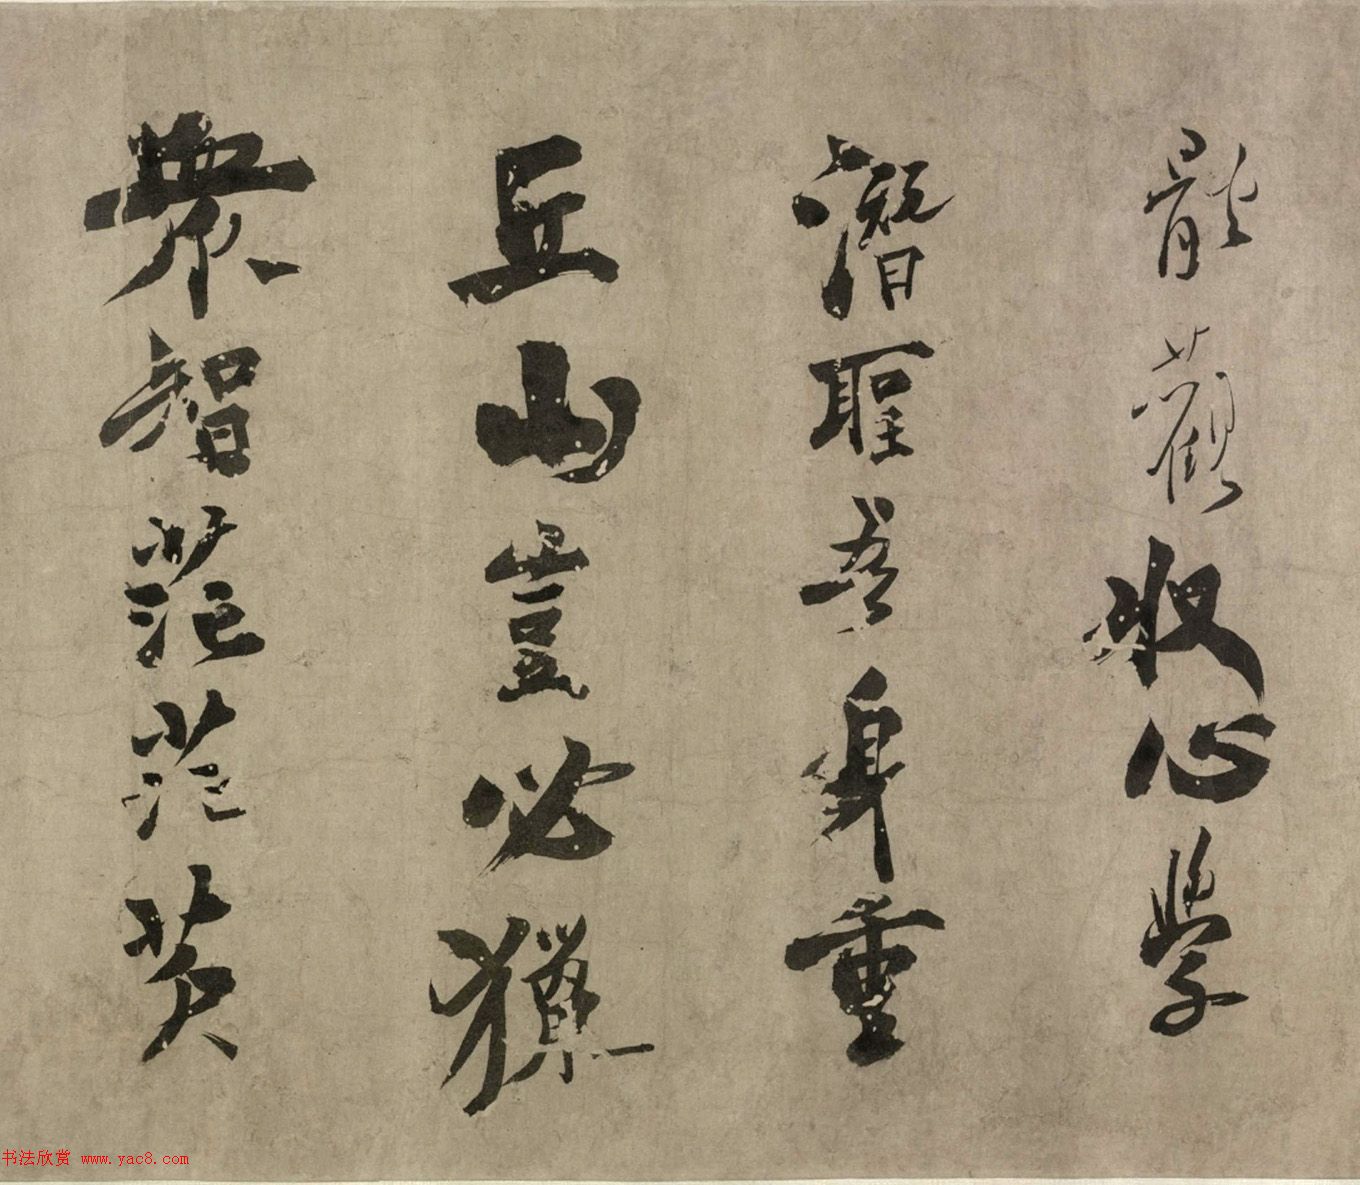 能觀收心學
潛聖吾身重
丘山豈必獵
眾智茫茫莫
书法欣赏 www.yac8.com